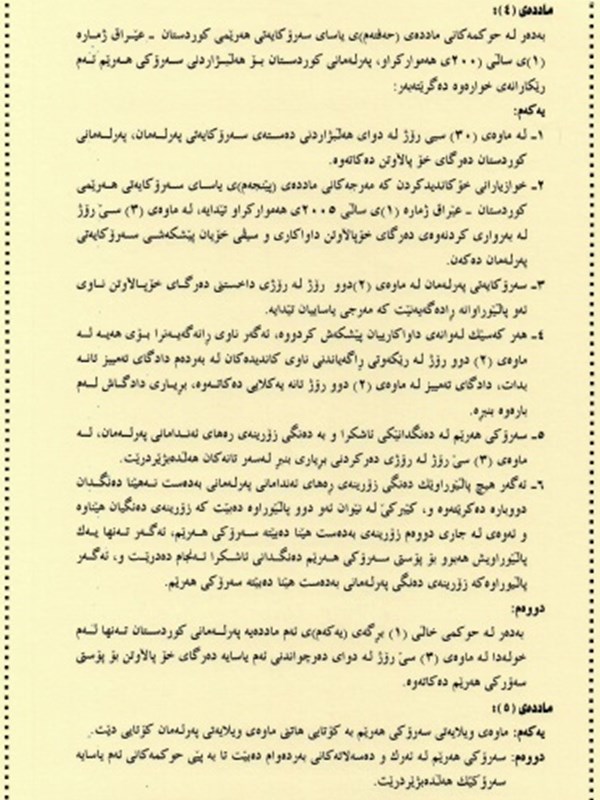 ماددەی (٤):
بەدەر لە حوکمەکانی ماددەی (حەفتەم)ی یاسای سەرۆکایەتی هەرێمی کوردستان ـ عێراق ژمارە
(١)ی ساڵی (٢٠٠)ی هەموارکراو، پەرلەمانی کوردستان بۆ هەڵبژاردنی سەرۆکی هەرێم ئەم
رێکارانەی خوارەوە دەگرێتەبەر:
یەکەم:
١ـ لە ماوەی (٣٠) سیی رۆژ لە دوای هەڵبژاردنی دەستەی سەرۆکایەتی پەرلەمان، پەرلەمانی
کوردستان دەرگای خۆ پالاوتن دەکاتەوە.
٢ـ خوازیارانی خۆکاندیدکردن کە مەرجەکانی ماددەی (پێنجەم)ی یاسای سەرۆکایەتی هەرێمی
کوردستان ـ عێراق ژمارە (١)ی ساڵی ٢٠٠٥ی هەموارکراو تێدایە، لە ماوەی (٣) سێ رۆژ
لە بەرواری کردنەوەی دەرگای خۆپالاوتن داواکاری و سیڤی خۆیان پێشکەشی سەرۆکایەتی
پەرلەمان دەکەن.
٣ـ سەرۆکایەتی پەرلەمان لە ماوەی (٢)دوو رۆژ لە رۆژی داخستنی دەرگای خۆپالاوتن ناوی
ئەو پاڵێوراوانە رادەگەیەنێت کە مەرجی یاساییان تێدایە.
٤ـ هەر کەسێک لەوانەی داواکارییان پێشکەش کردووە، ئەگەر ناوی رانەگەیەنرا بۆی هەیە لە
ماوەی (٢) دوو رۆژ لە رێکەوتی راگەیاندنی ناوی کاندیدەکان لە بەردەم دادگای تەمییز تانە
بدات، دادگای تەمییز لە ماوەی (٢) دوو رۆژ تانە یەکلایی دەکاتەوە، بڕیاری دادگاش لەم
بارەوە بنبڕە.
٥ـ سەرۆکی هەرێم لە دەنگدانێکی ئاشکرا و بە دەنگی زۆرینەی رەهای ئەندامانی پەرلەمان، لە
ماوەی (٣) سێ رۆژ لە رۆژی دەرکردنی بڕیاری بنبڕ لەسەر تانەکان هەڵدەبژێردرێت.
٦ـ ئەگەر هیچ پاڵێوراوێک دەنگی زۆرینەی رەهای ئەندامانی پەرلەمانی بەدەست نەهێنا دەنگدان
دووبارە دەکرێتەوە و، کێبرکێ لە نێوان ئەو دوو پاڵێوراوە دەبێت کە زۆرینەی دەنگیان هێناوە
و ئەوەی لە جاری دووەم زۆرینەی بەدەست هێنا دەبێتە سەرۆکی هەرێم، ئەگەر تەنها یەک
پاڵێوراویش هەبوو بۆ پۆستی سەرۆکی هەرێم دەنگدانی ئاشکرا ئەنجام دەدرێت و، ئەگەر
پاڵێوراوەکە زۆرینەی دەنگی پەرلەمانی بەدەست هێنا دەبێتە سەرۆکی هەرێم.
دووەم:
بەدەر لە حوکمی خاڵی (١) بڕگەی (یەکەم)ی ئەم ماددەیە پەرلەمانی کوردستان تەنها لەم
خولەدا لە ماوەی (٣) سێ رۆژ لە دوای دەرچواندنی ئەم یاسایە دەرگای خۆ پالاوتن بۆ پۆستی
سەرۆکی هەرێم دەکاتەوە.
ماددەی (٥):
یەکەم: ماوەی ویلایەتی سەرۆکی هەرێم بە کۆتایی هاتنی ماوەی ویلایەتی پەرلەمان کۆتایی دێت.
دووەم: سەرۆکی هەرێم لە ئەرک و دەسەڵاتەکانی بەردەوام دەبێت تا بە پێی حوکمەکانی ئەم یاسایە
سەرۆکێک هەڵدەبژێردرێت.